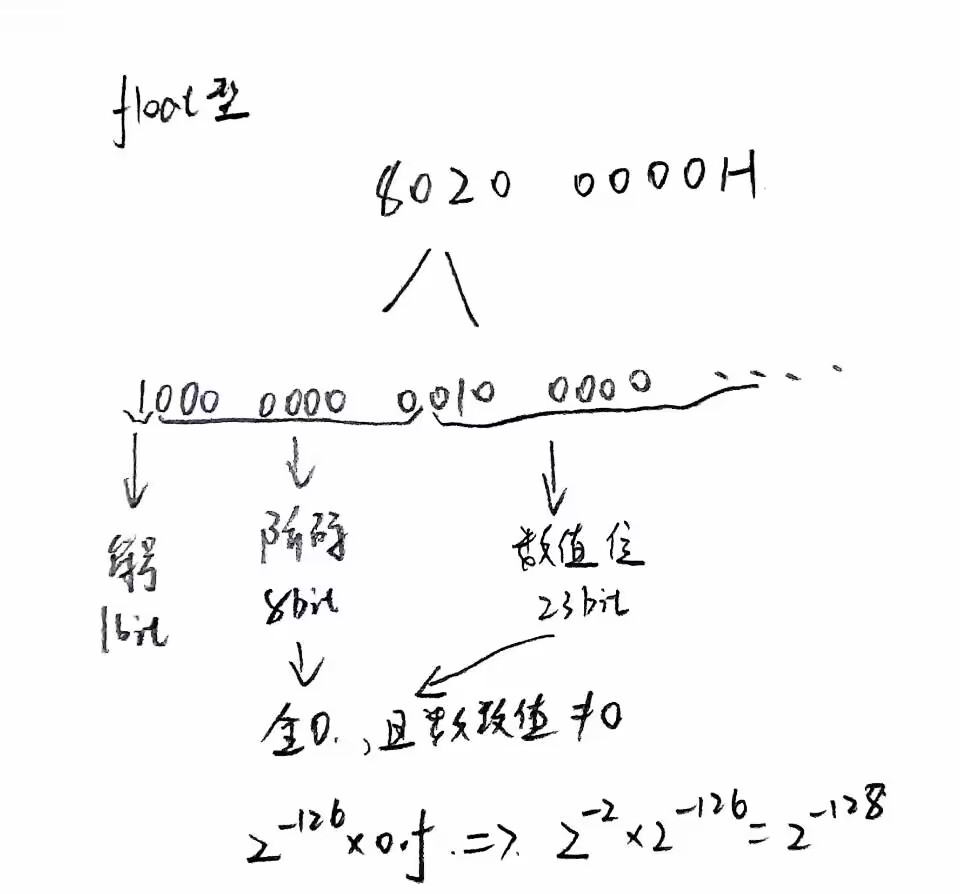 float型
8020 0000H
1000 0000 0010 0000 ....
符号 阶码 数值位
1bit 8bit 23bit
全0.,且数数值≠0
2^-126×0.f.=>. 2^-2×2^-126=2^-128